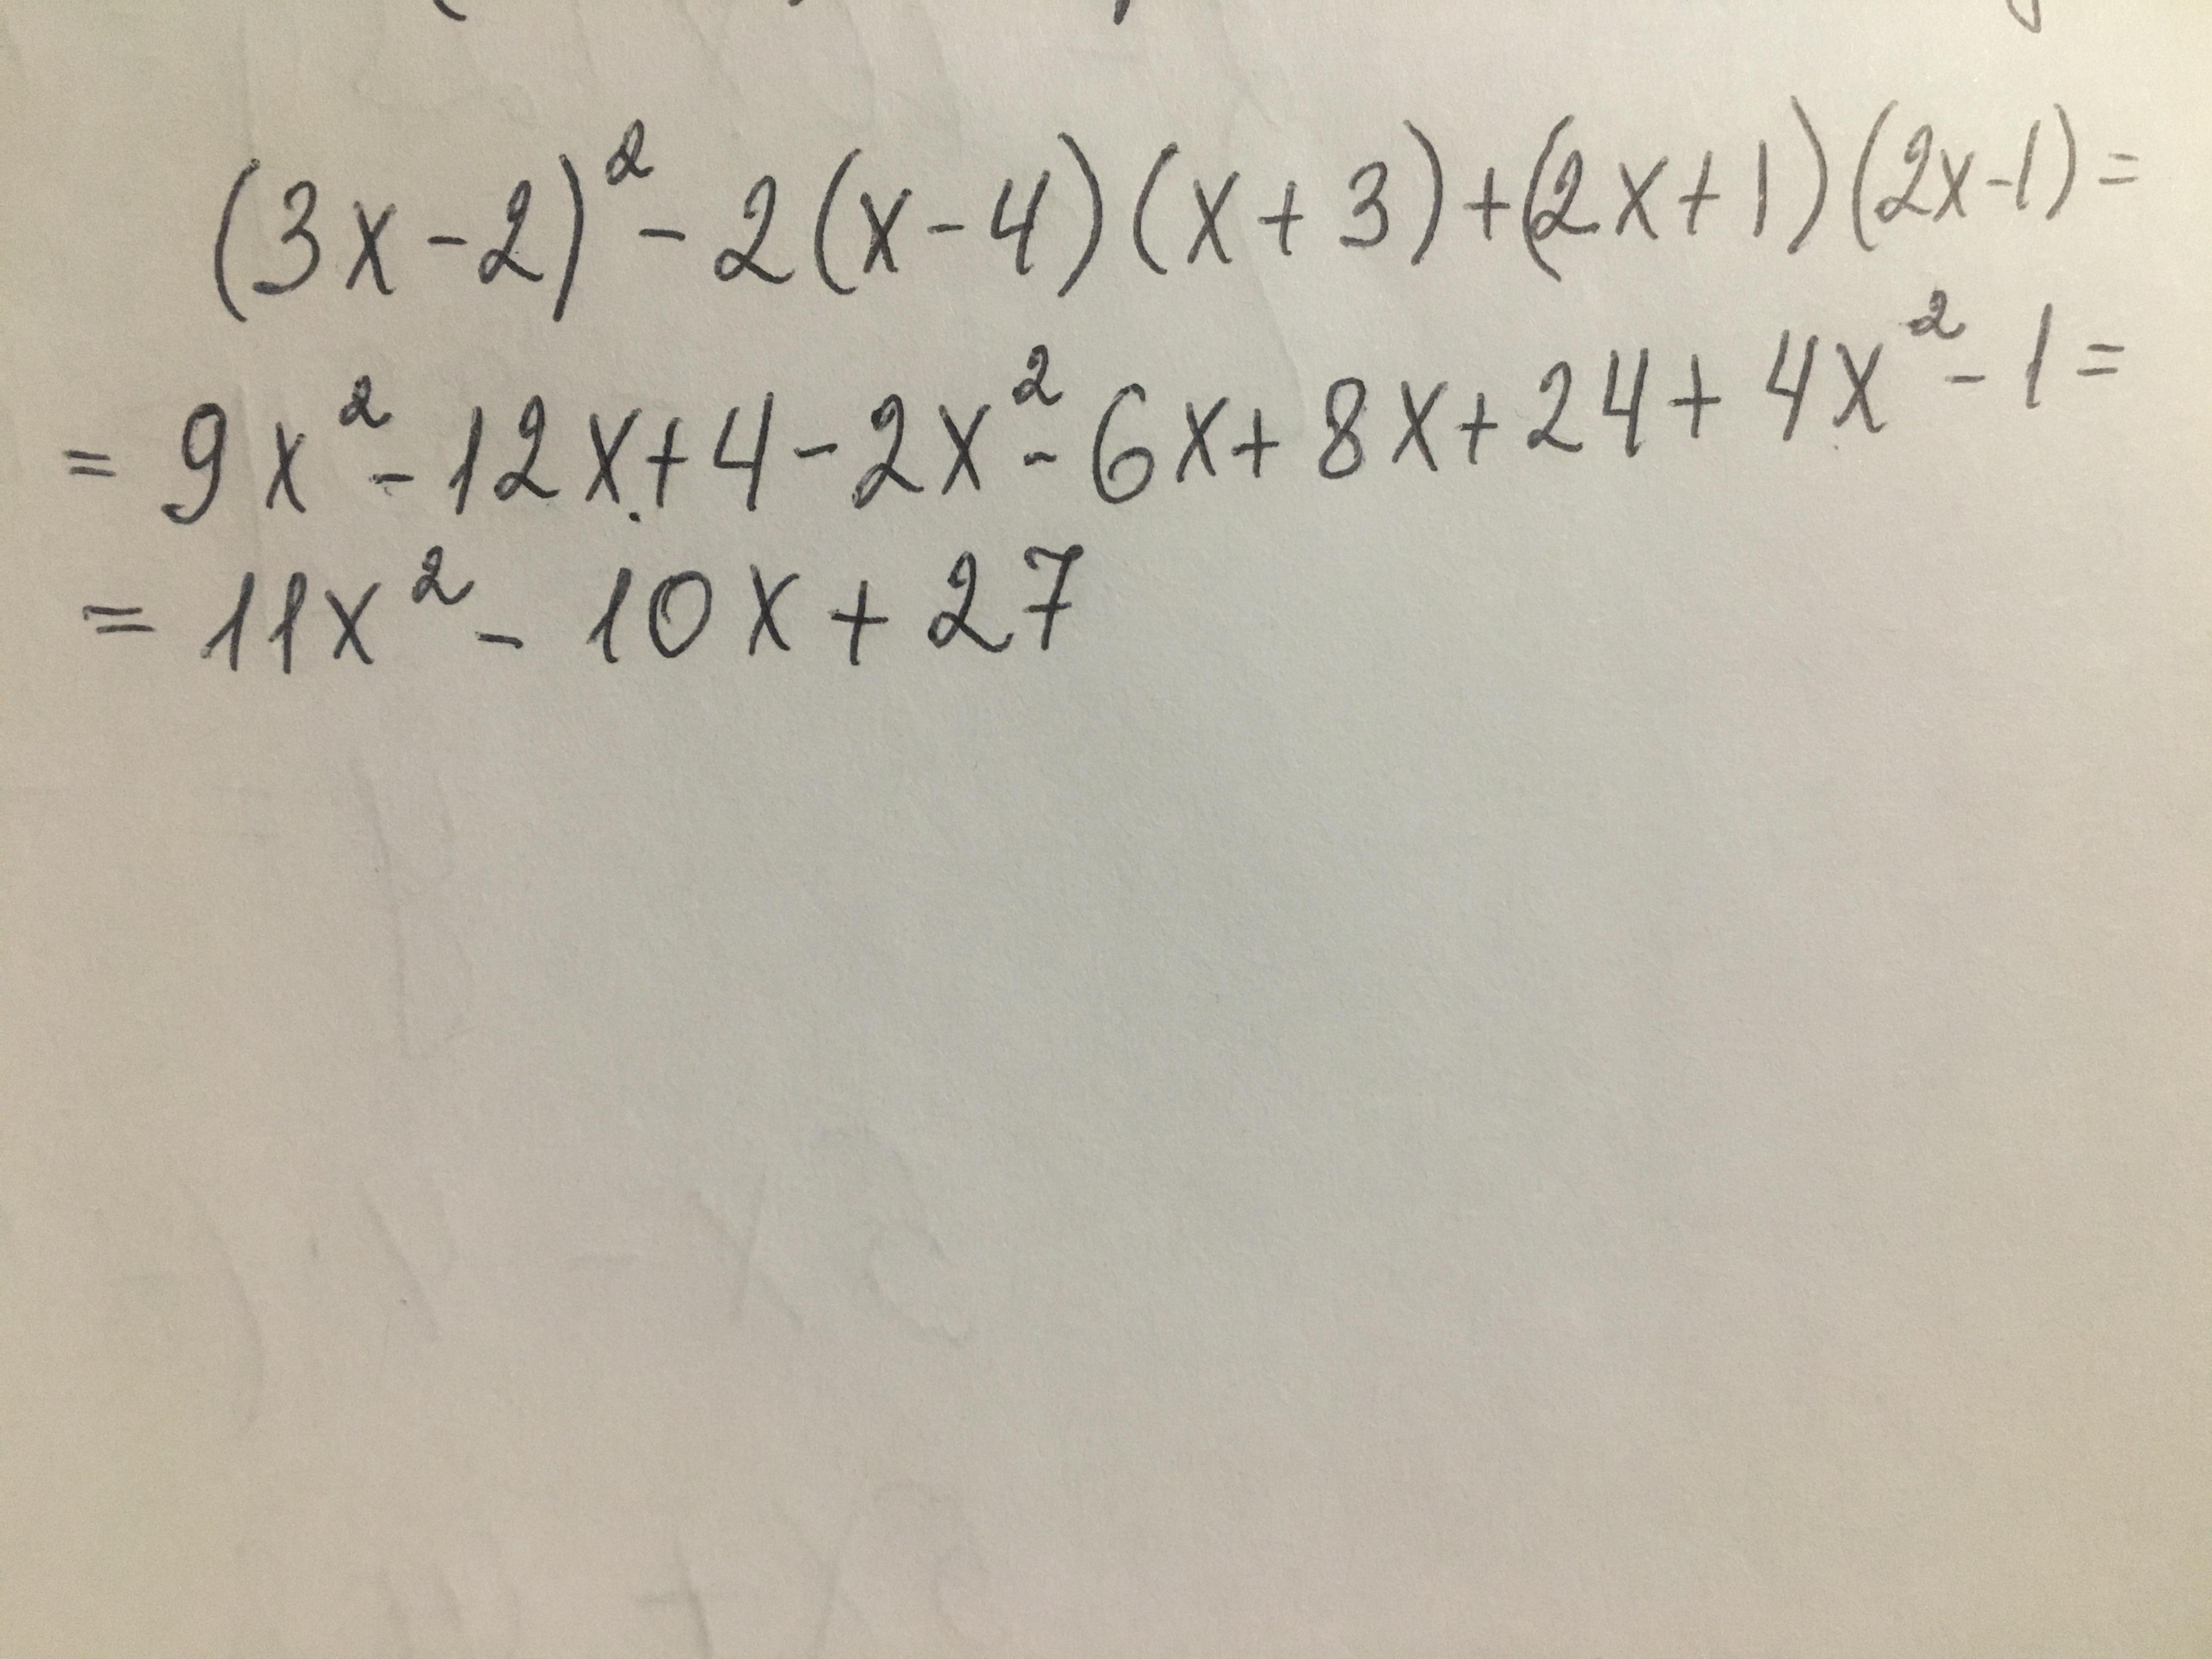 (3x-2)²-2(x-4)(x+3)+(2x+1)(2x-1)=
=9x²-12x+4-2x²-6x+8x+24+4x²-1=
=11x²-10x+27